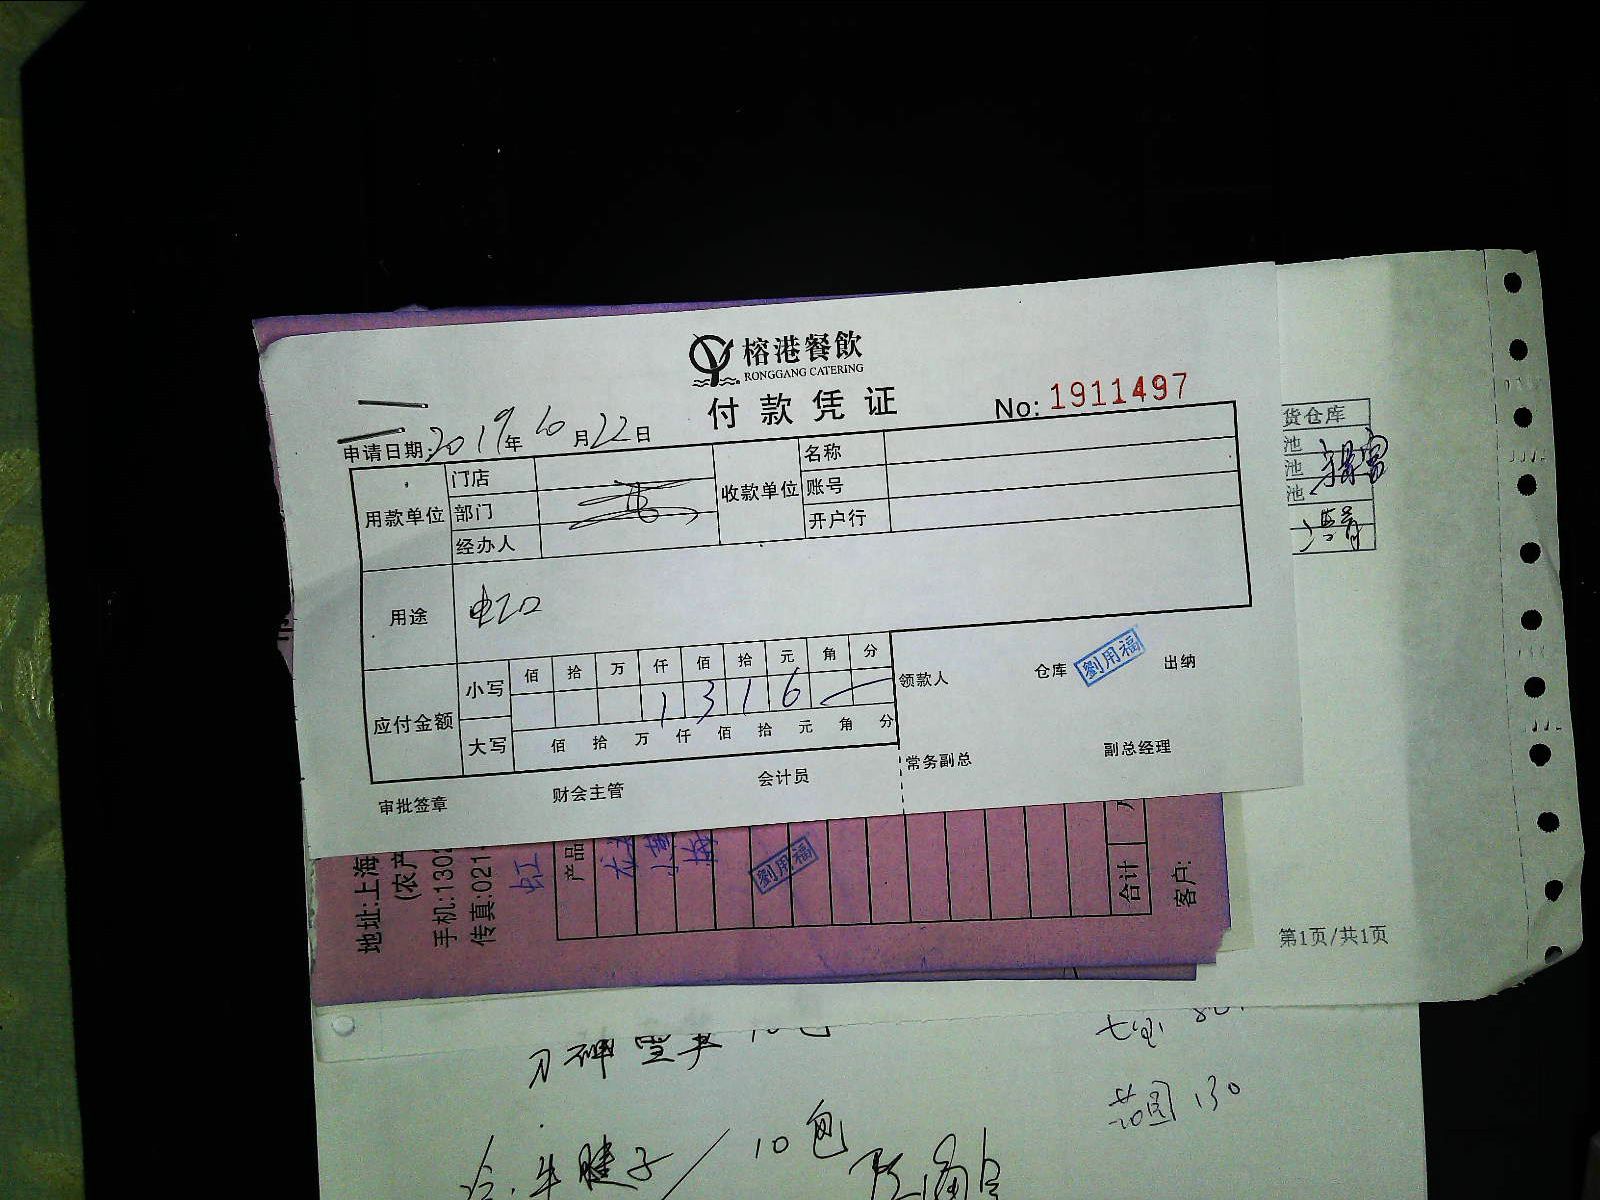 榕港餐飲
RONGGANG CATERING
付款凭证
No: 1911497
申请日期: 2019年10月22日
用款单位 门店 部门 经办人
收款单位 名称 账号 开户行
用途
应付金额 小写 佰 拾 万 仟 佰 拾 元 角 分
1 3 1 6
大写 佰 拾 万 仟 佰 拾 元 角 分
领款人 仓库 劉用福 出纳
常务副总 副总经理
审批签章 财会主管 会计员
货仓库
池
池
池
地址:上海
(农产
手机:130
传真:021
虹
产品
劉用福
合计
客户:
第1页/共1页
10包
牛腱子 10包
130